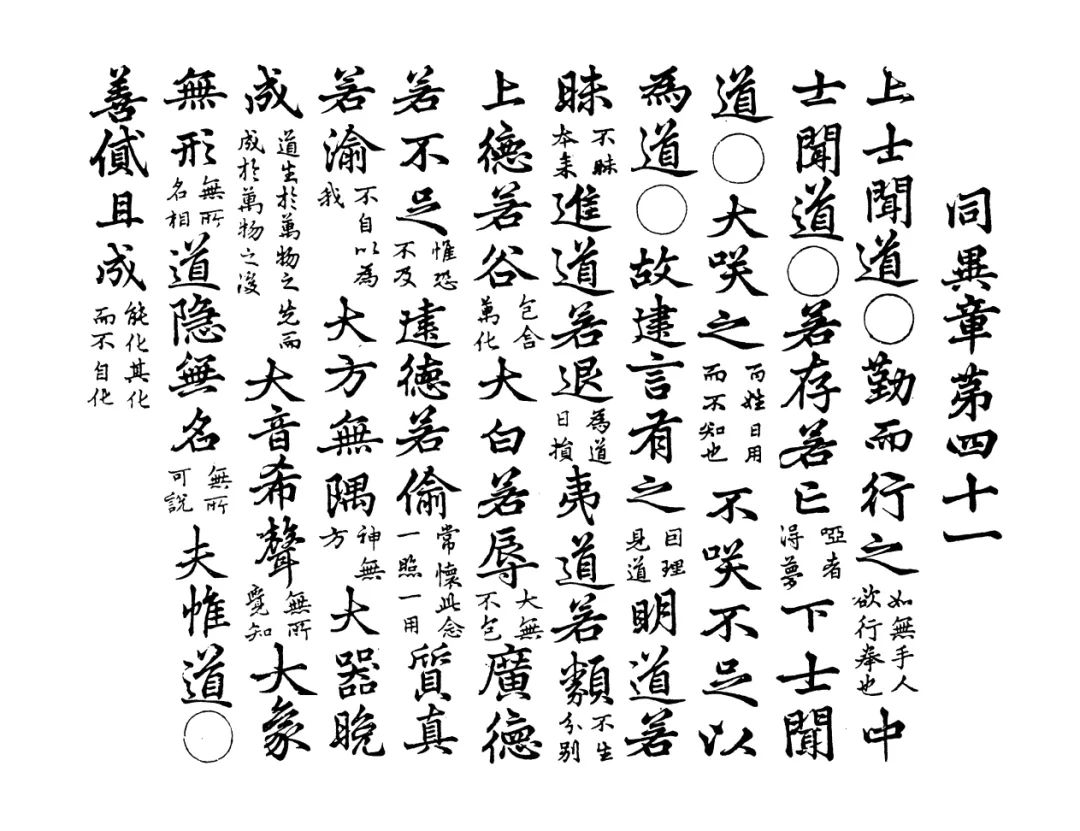 同異章第四十一
上士聞道○勤而行之如無手人欲行拳也中
士聞道○若存若亡啞者得夢下士聞
道○大咲之百姓日用而不知也不咲不足以
為道○故建言有之囙理見道明道若
昧不昧本来進道若退為道日損夷道若類不生分别
上德若谷包含萬化大白若辱大無不包廣德
若不足惟恐不及建德若偷常懷此念一照一用質真
若渝不自以為我大方無隅神無方大器晚
成道生於萬物之先而成於萬物之後大音希聲無所覺知大象
無形無所名相道隐無名無所可説夫惟道○
善貸且成能化其化而不自化